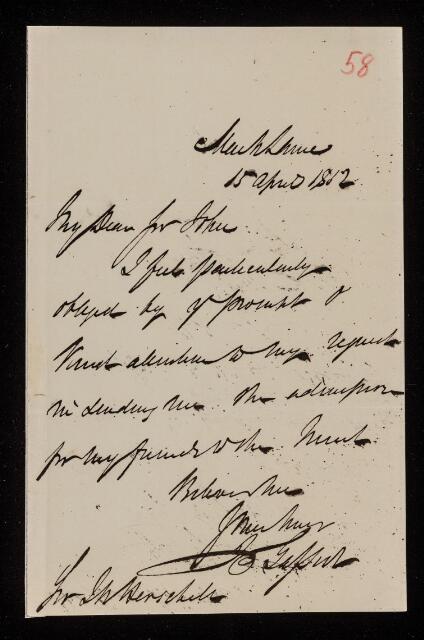 58
Mark Lane
15 April 1852
My Dear Sir John
I feel particularly
obliged by yr prompt &
kind attention to my request
in sending me the admission
for my friends to the Mint
Believe me
Yours truly
Sir J. Herschel